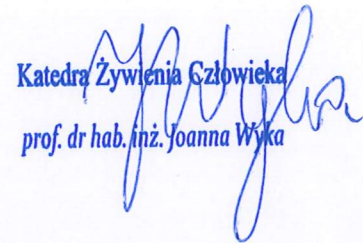 Katedra Żywienia Człowieka
prof. dr hab. inż. Joanna Wyka